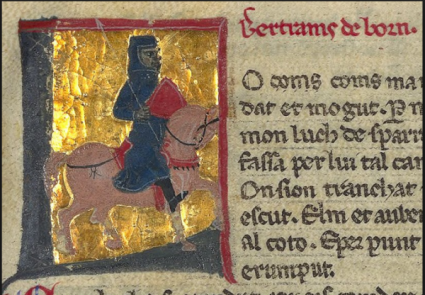 Bertrams de born.
O coms coms ma
dat et mogut. P
mon luch de sparr
fassa per lui tal can
On sion tranchat
escut. Elm et auber
Al coto. E per punt
erumput.